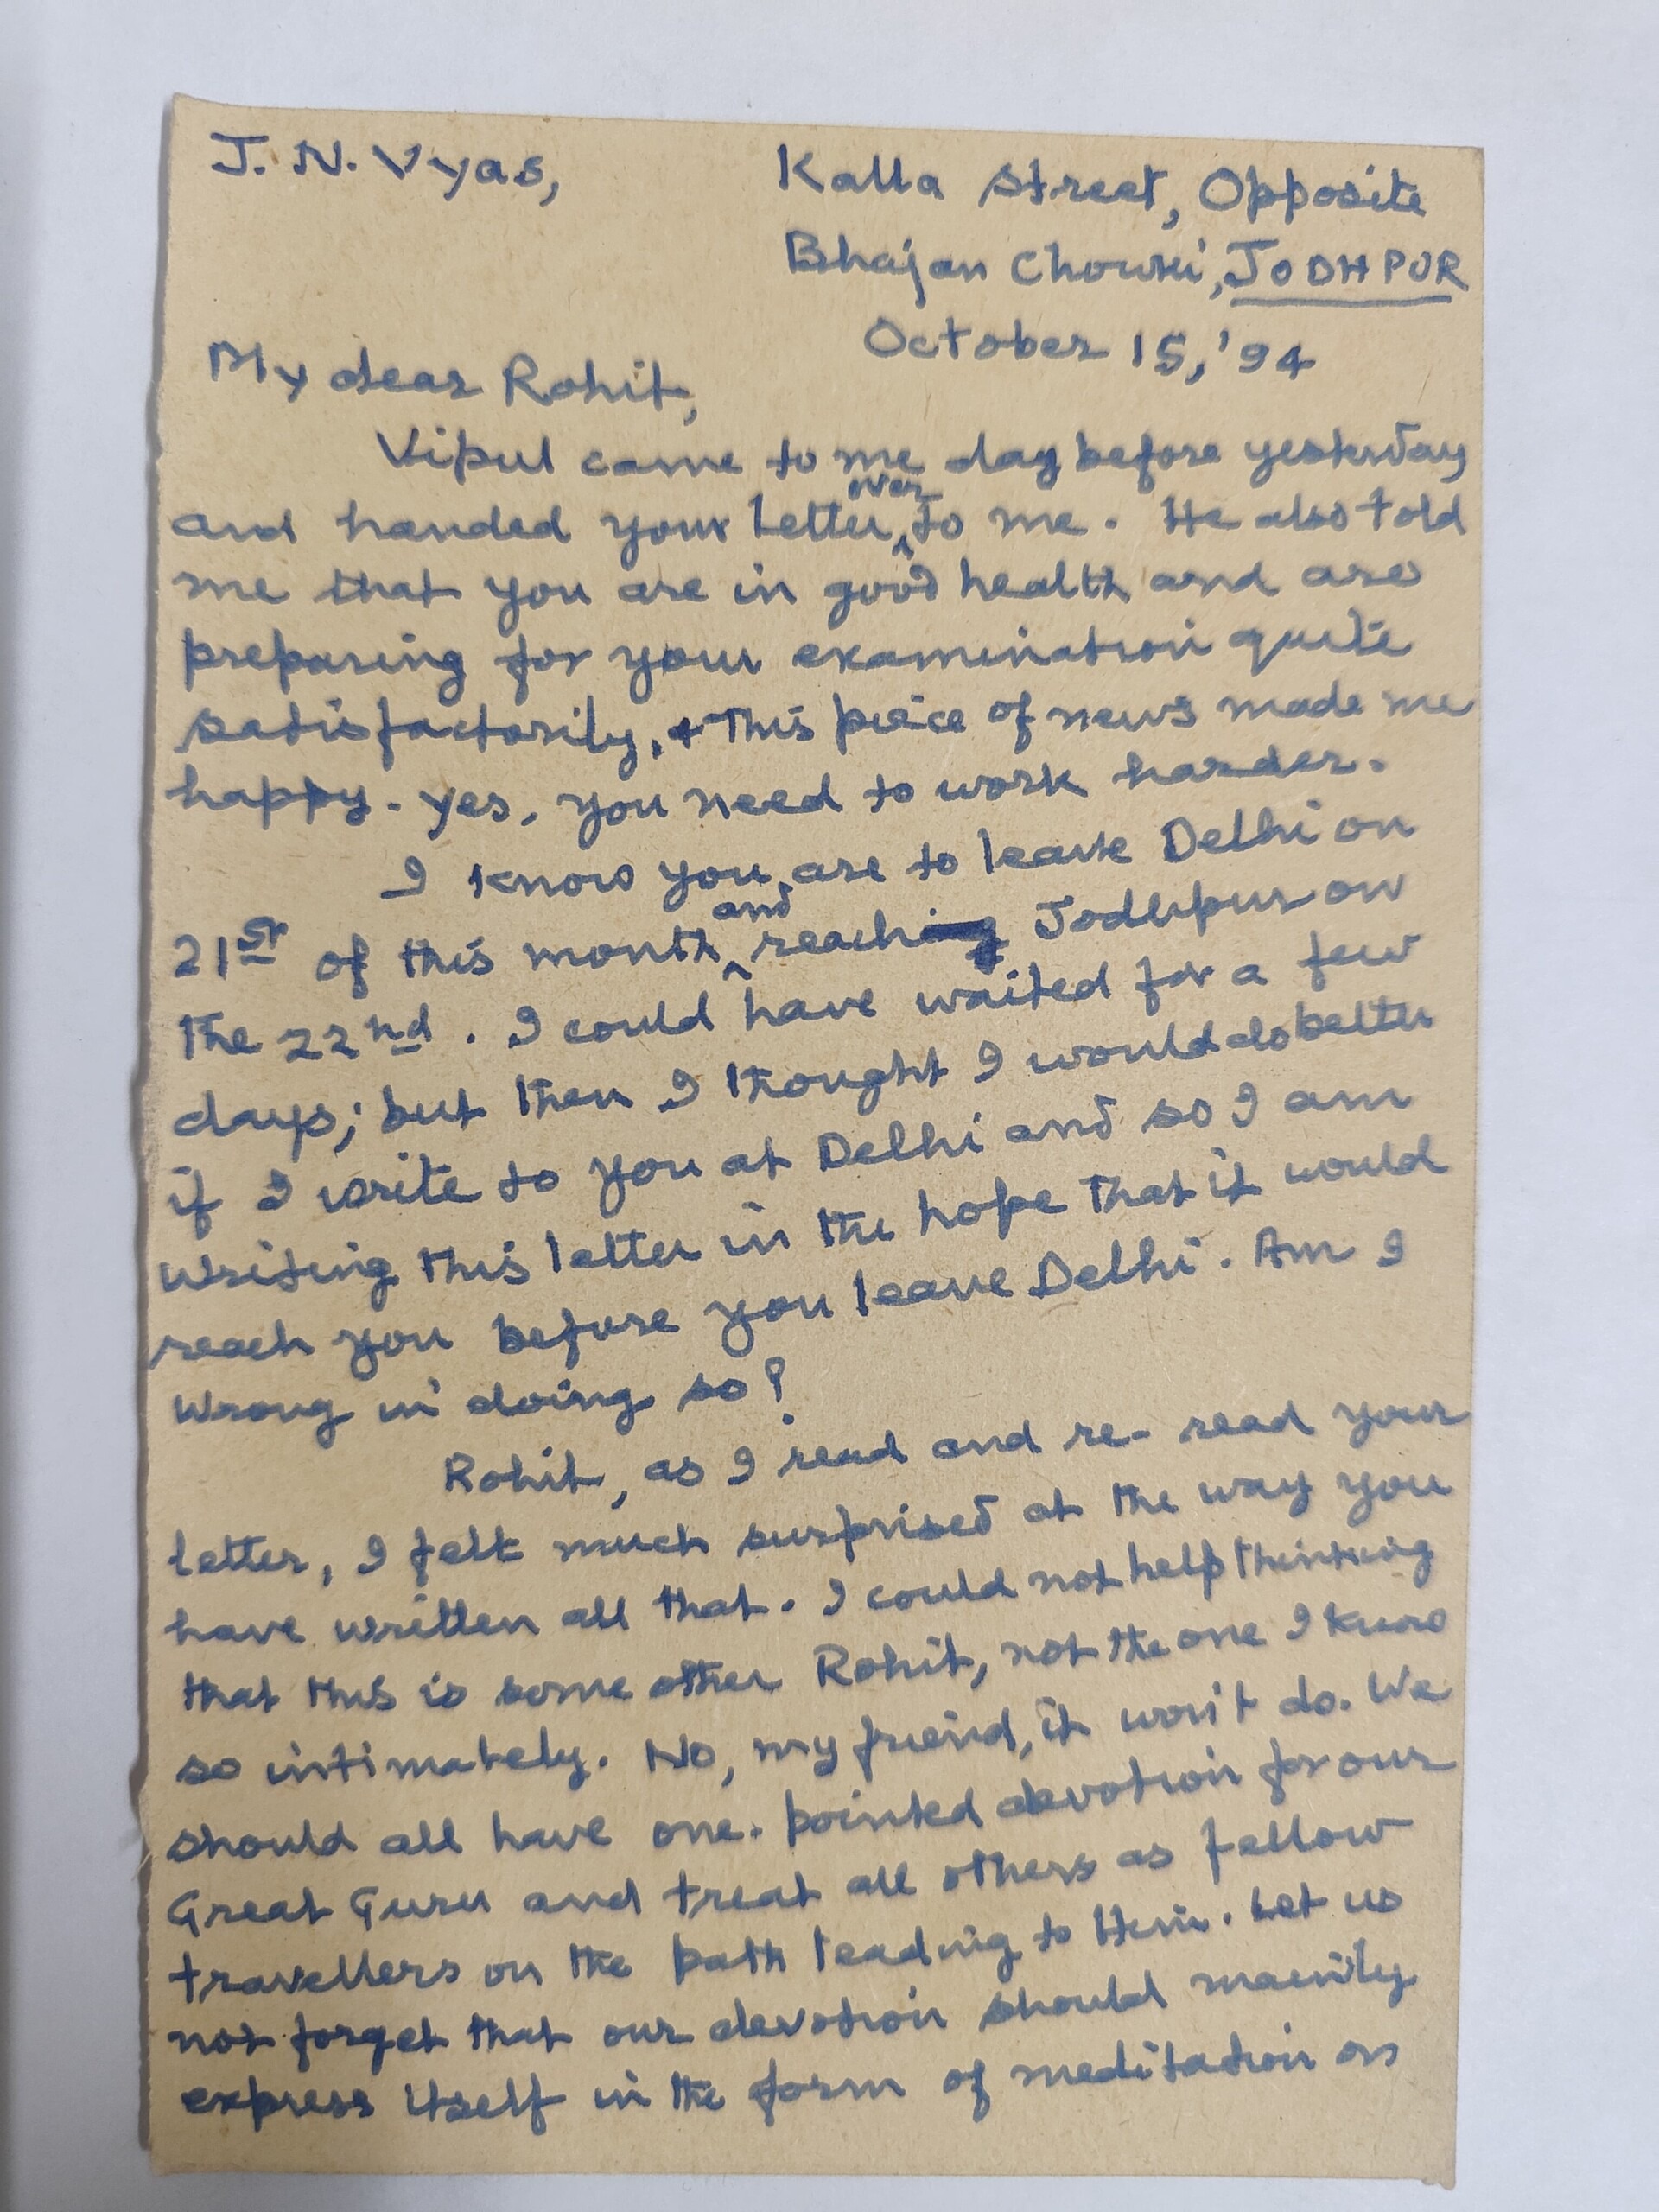 J. N. Vyas,
Kalla Street, Opposite
Bhajan Chowki, JODHPUR
October 15, '94
My dear Rohit,
Vipul came to me day before yesterday
and handed your letter over to me. He also told
me that you are in good health and are
preparing for your examination quite
satisfactorily. This piece of news made me
happy. Yes, you need to work harder.
I know you are to leave Delhi on
21st of this month and reach Jodhpur on
the 22nd. I could have waited for a few
days; but then I thought I would do better
if I write to you at Delhi and so I am
writing this letter in the hope that it would
reach you before you leave Delhi. Am I
wrong in doing so?
Rohit, as I read and re-read your
letter, I felt much surprised at the way you
have written all that. I could not help thinking
that this is some other Rohit, not the one I know
so intimately. No, my friend, it won't do. We
should all have one-pointed devotion for our
Great Guru and treat all others as fellow
travellers on the path leading to Him. Let us
not forget that our devotion should mainly
express itself in the form of meditation on